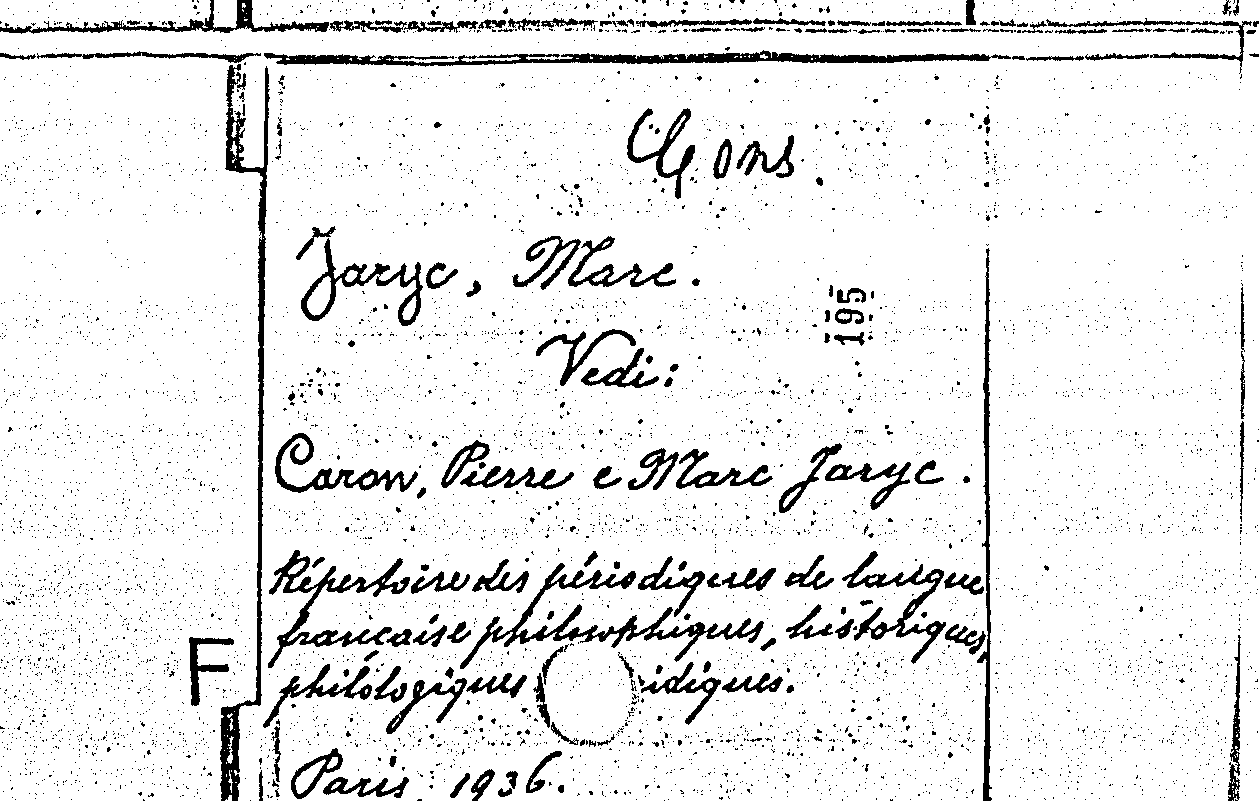 Cons.
Jaryc, Marc.
195
Vedi:
Caron, Pierre e Marc Jaryc.
Répertoire des périodiques de langue
française philosophiques, historiques,
F
philologiques idiques.
Paris, 1936.